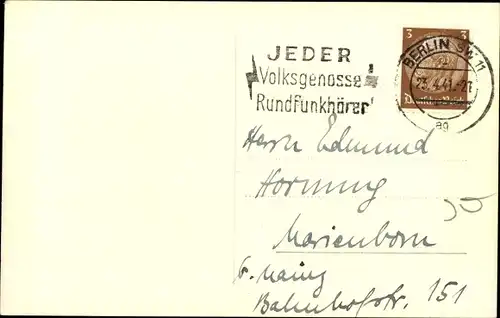 JEDER
Volksgenosse
Rundfunkhörer
3 3
Deutsches Reich
BERLIN SW 11
23.4.41.-21
ag
Herrn Edmund
Hornung
Marienborn
b. Mainz
Bahnhofstr. 151